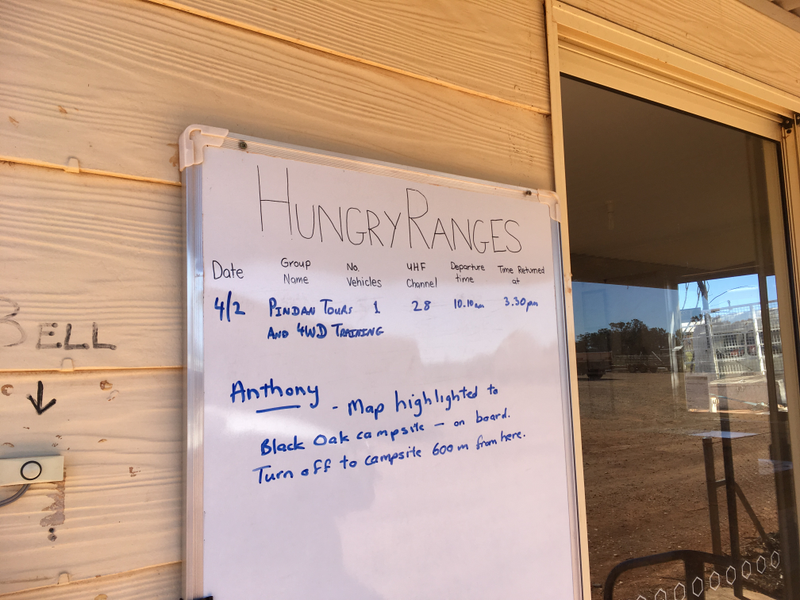 HUNGRY RANGES
Date Group Name No. Vehicles UHF Channel Departure time Time Returned at
4/2 PINDAN TOURS AND 4WD TRAINING 1 28 10.10am 3.30pm
Anthony - Map highlighted to
Black Oak campsite - on board.
Turn off to campsite 600m from here.
BELL